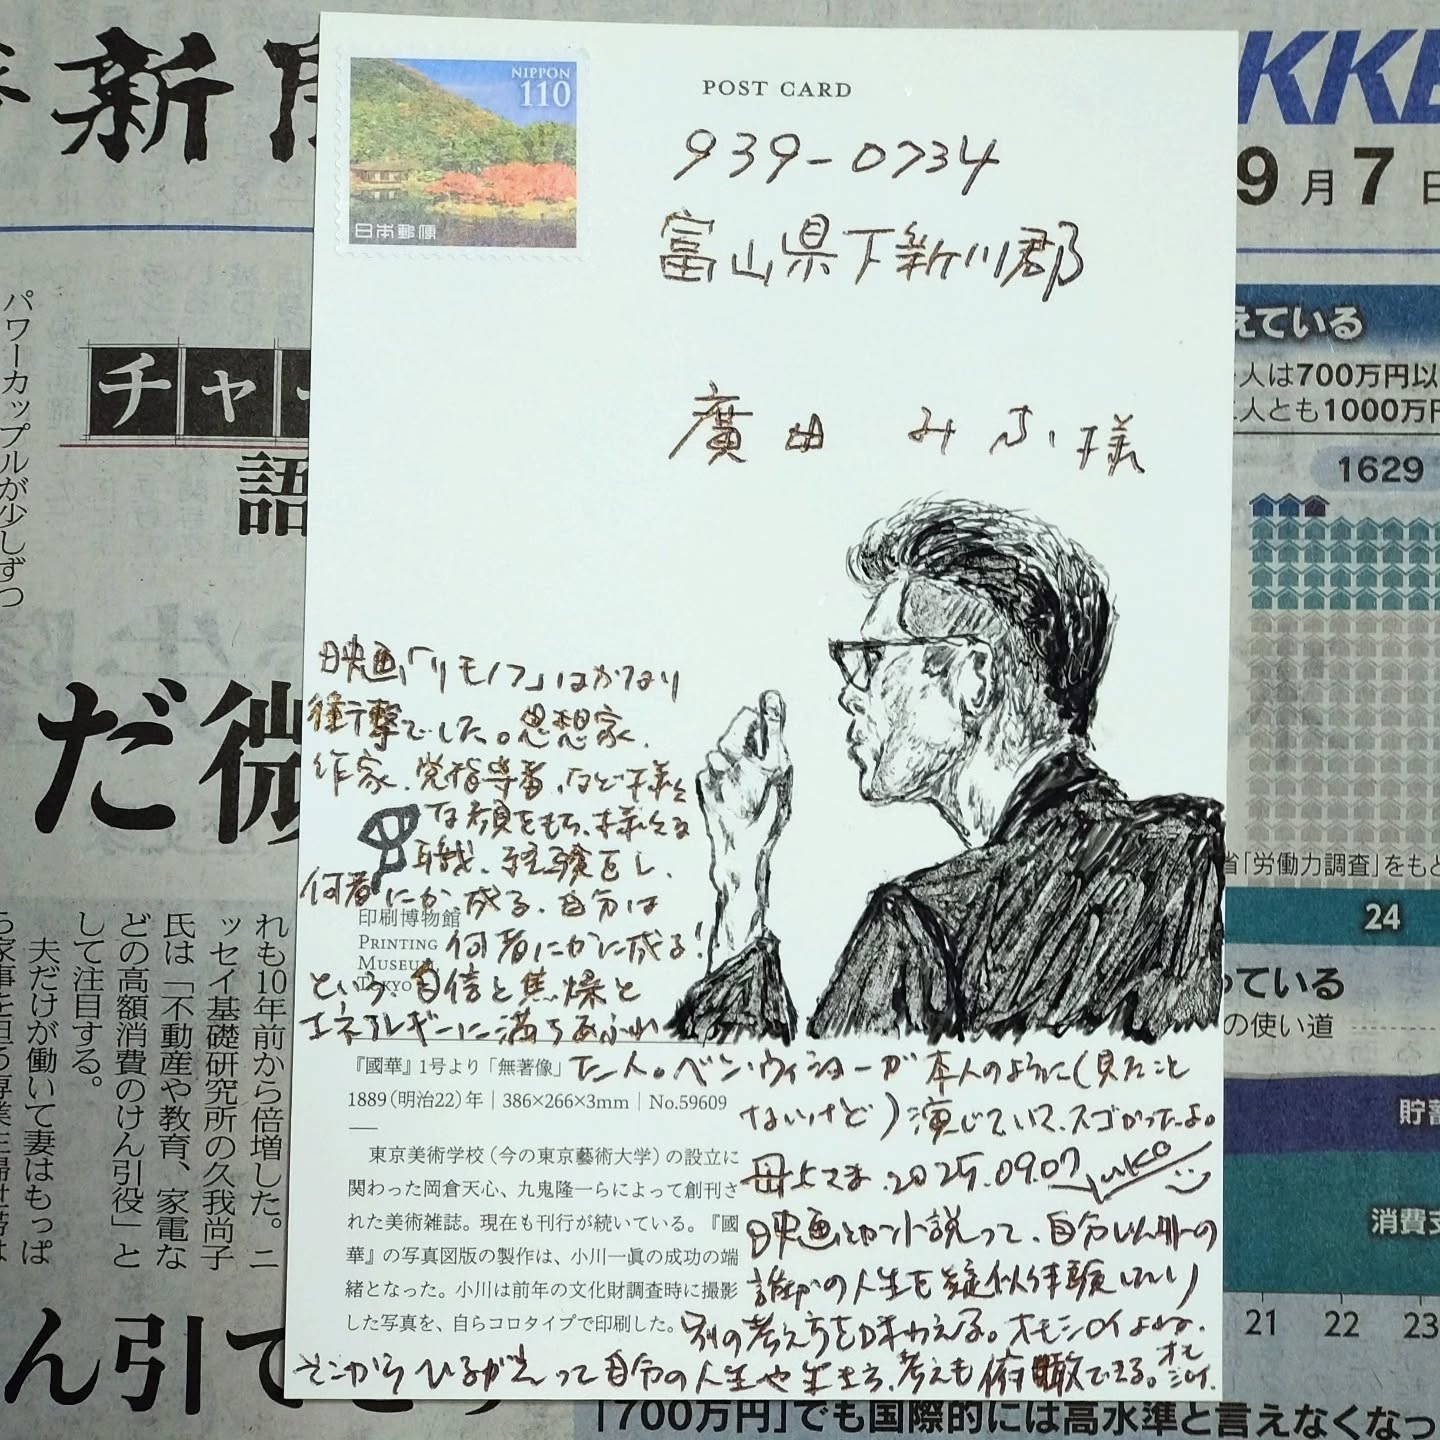 新
KKE
9月7日
NIPPON
110
日本郵便
POST CARD
939-0734
富山県下新川郡
廣田 みふ様
映画「リモノフ」はかなり
衝撃でした。思想家、
作家、党指導者、など様々
な顔をもち、様々な
職、経験をし、
何者にか成る、自分は
何者にかに成る!
という、自信と焦燥と
エネルギーに満ちあふれ
た人。ベン・ウィショーが本人のように(見たこと
ないけど)演じていて、スゴかったよ。
母上さま、2025.09.07 yuko
映画とか小説って、自分以外の
誰かの人生を疑似体験したり
別の考え方を味わえる。オモシロイよね、
そこからひるがえって自分の人生や生き方、考えも俯瞰できる。オモシロイ.
印刷博物館
PRINTING
MUSEUM
TOKYO
『國華』1号より「無著像」
1889(明治22)年|386×266×3mm|No.59609
東京美術学校(今の東京藝術大学)の設立に
関わった岡倉天心、九鬼隆一らによって創刊さ
れた美術雑誌。現在も刊行が続いている。『國
華』の写真図版の製作は、小川一眞の成功の端
緒となった。小川は前年の文化財調査時に撮影
した写真を、自らコロタイプで印刷した。
パワーカップルが少しずつ
チャ
語
だ微
れも10年前から倍増した。ニ
ッセイ基礎研究所の久我尚子
氏は「不動産や教育、家電な
どの高額消費のけん引役」と
して注目する。
夫だけが働いて妻はもっぱ
ら家事を担う専業主婦世帯は
ん引て
えている
人は700万円以
人とも1000万円
1629
省「労働力調査」をもと
24
っている
の使い道
貯蓄
消費支
21
22
23
「700万円」でも国際的には高水準と言えなくなっ